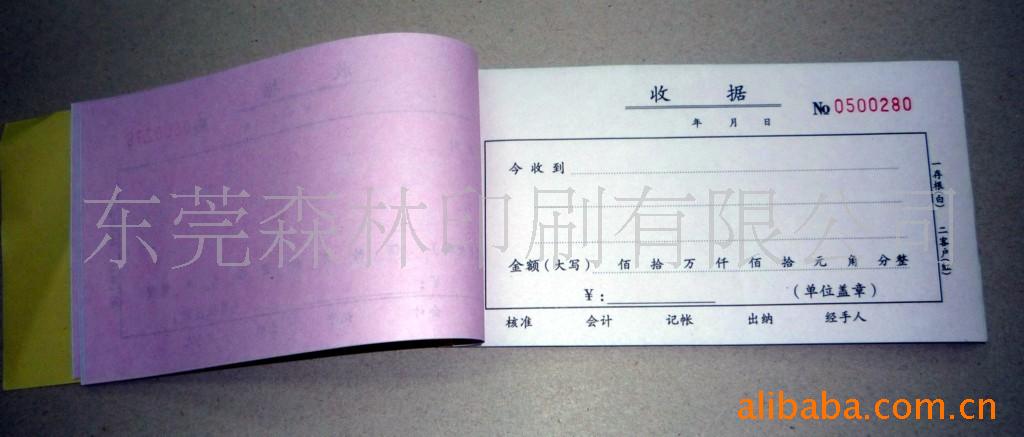 收 据
No 0500280
年 月 日
今 收 到
金额(大写) 佰 拾 万 仟 佰 拾 元 角 分 整
¥:
(单位盖章)
核准 会计 记帐 出纳 经手人
一存根(白) 二客户(红)
东莞森林印刷有限公司
alibaba.com.cn